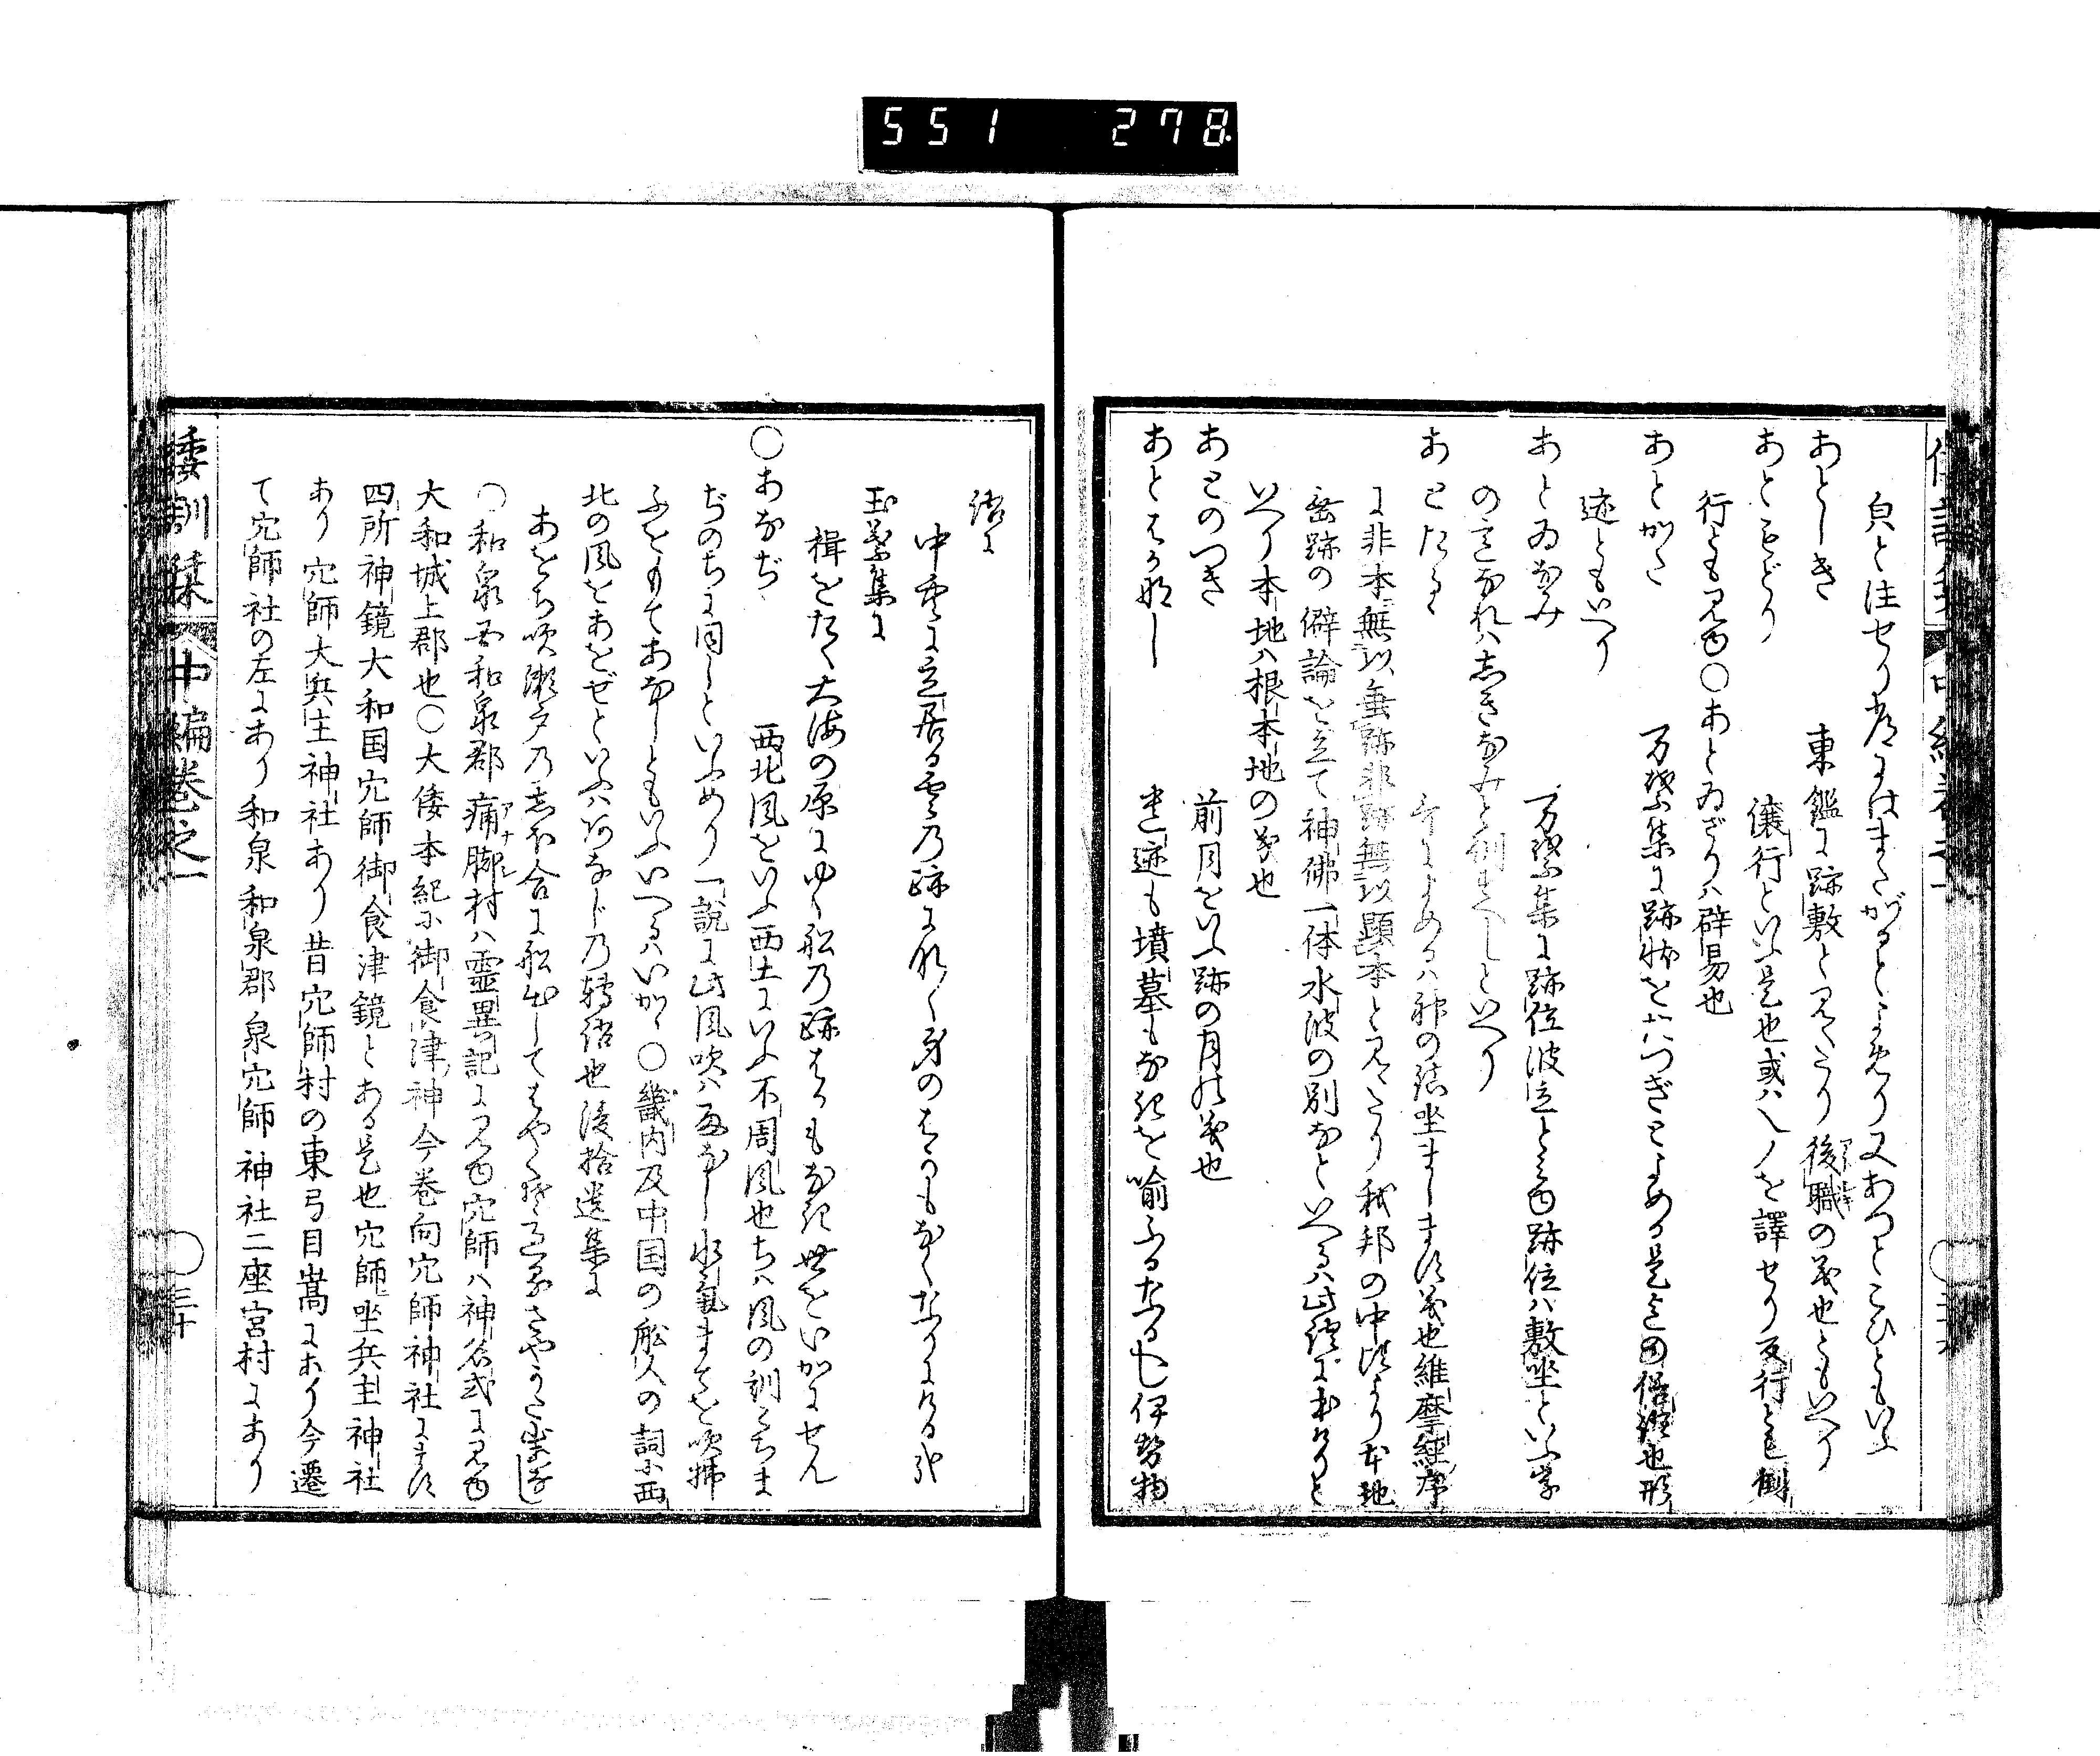 551 278
貟と注せり考にはまたがるとよめり又あつとこひともいふ
あとしき 東鑑に跡敷と見えたり後職の義也ともいへり
あともどり 儀行といふ是也或ハ人ノを譯せり反行とも倒
行とも見ゆ〇あとゐざりハ辟易也
あとかた 万葉集に跡状を六つぎとよめる是也 保證也形
迹ともいへり
あとゐなみ 万葉集に跡位浪立と見ゆ跡位ハ敷坐といふ常
の言なれハしきなみと訓すへしといへり
あとたる 歌によめるハ神の鎮坐まします義也維摩經序
に非本無以垂跡非跡無以顯本と見えたり我邦の中比より本地
垂跡の僻論を立て神佛一体水波の別なといへるハ此語に本けりと
いへり本地ハ根本地の義也
あとのつき 前月をいふ跡の月の義也
あとはかなし 遺迹も墳墓もなきを喩ふるなるへし伊勢物
語に
中空に立居る雲の跡もなく身のはかなくもなりにける哉
玉葉集に
楫をたえ大海の原にゆく船の跡はかもなき世をいかにせん
〇あなぢ 西北風をいふ西土にいふ不周風也ちハ風の訓こちま
ぢのちに同しといふめり一説に此風吹ハ雲なし水氣まてを吹拂
ふをもてあなしともいふいへるハいかゝ〇畿内及中国の船人の詞に西
北の風をあなぜといふハあなじの轉語也後拾遺集に
あなち吹瀬戸の志ほ合に船出してはやくそ過るさやかた山を
〇和泉国和泉郡痛脚村ハ靈異記に見ゆ穴師ハ神名式に見ゆ
大和城上郡也〇大倭本紀に御食津神今巻向穴師神社にます
四所神鏡大和国穴師御食津鏡とある是也穴師坐兵主神社
あり穴師大兵主神社あり昔穴師村の東弓月嵩にあり今遷
て穴師社の左にあり和泉和泉郡泉穴師神社二座宮村にあり
倭訓栞 中編巻之一 三十